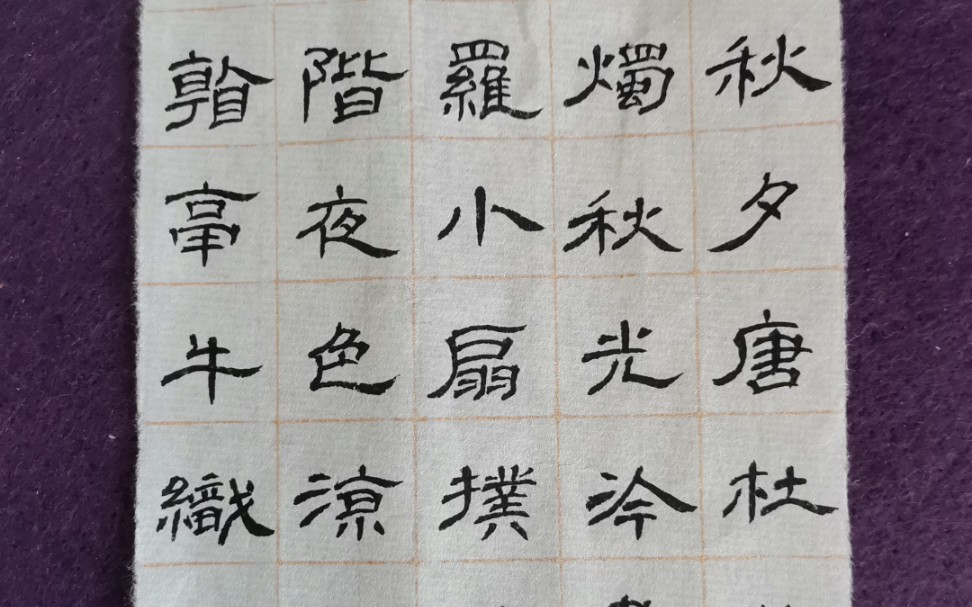 秋夕唐杜
燭秋光冷
羅小扇撲
階夜色凉
看牽牛織